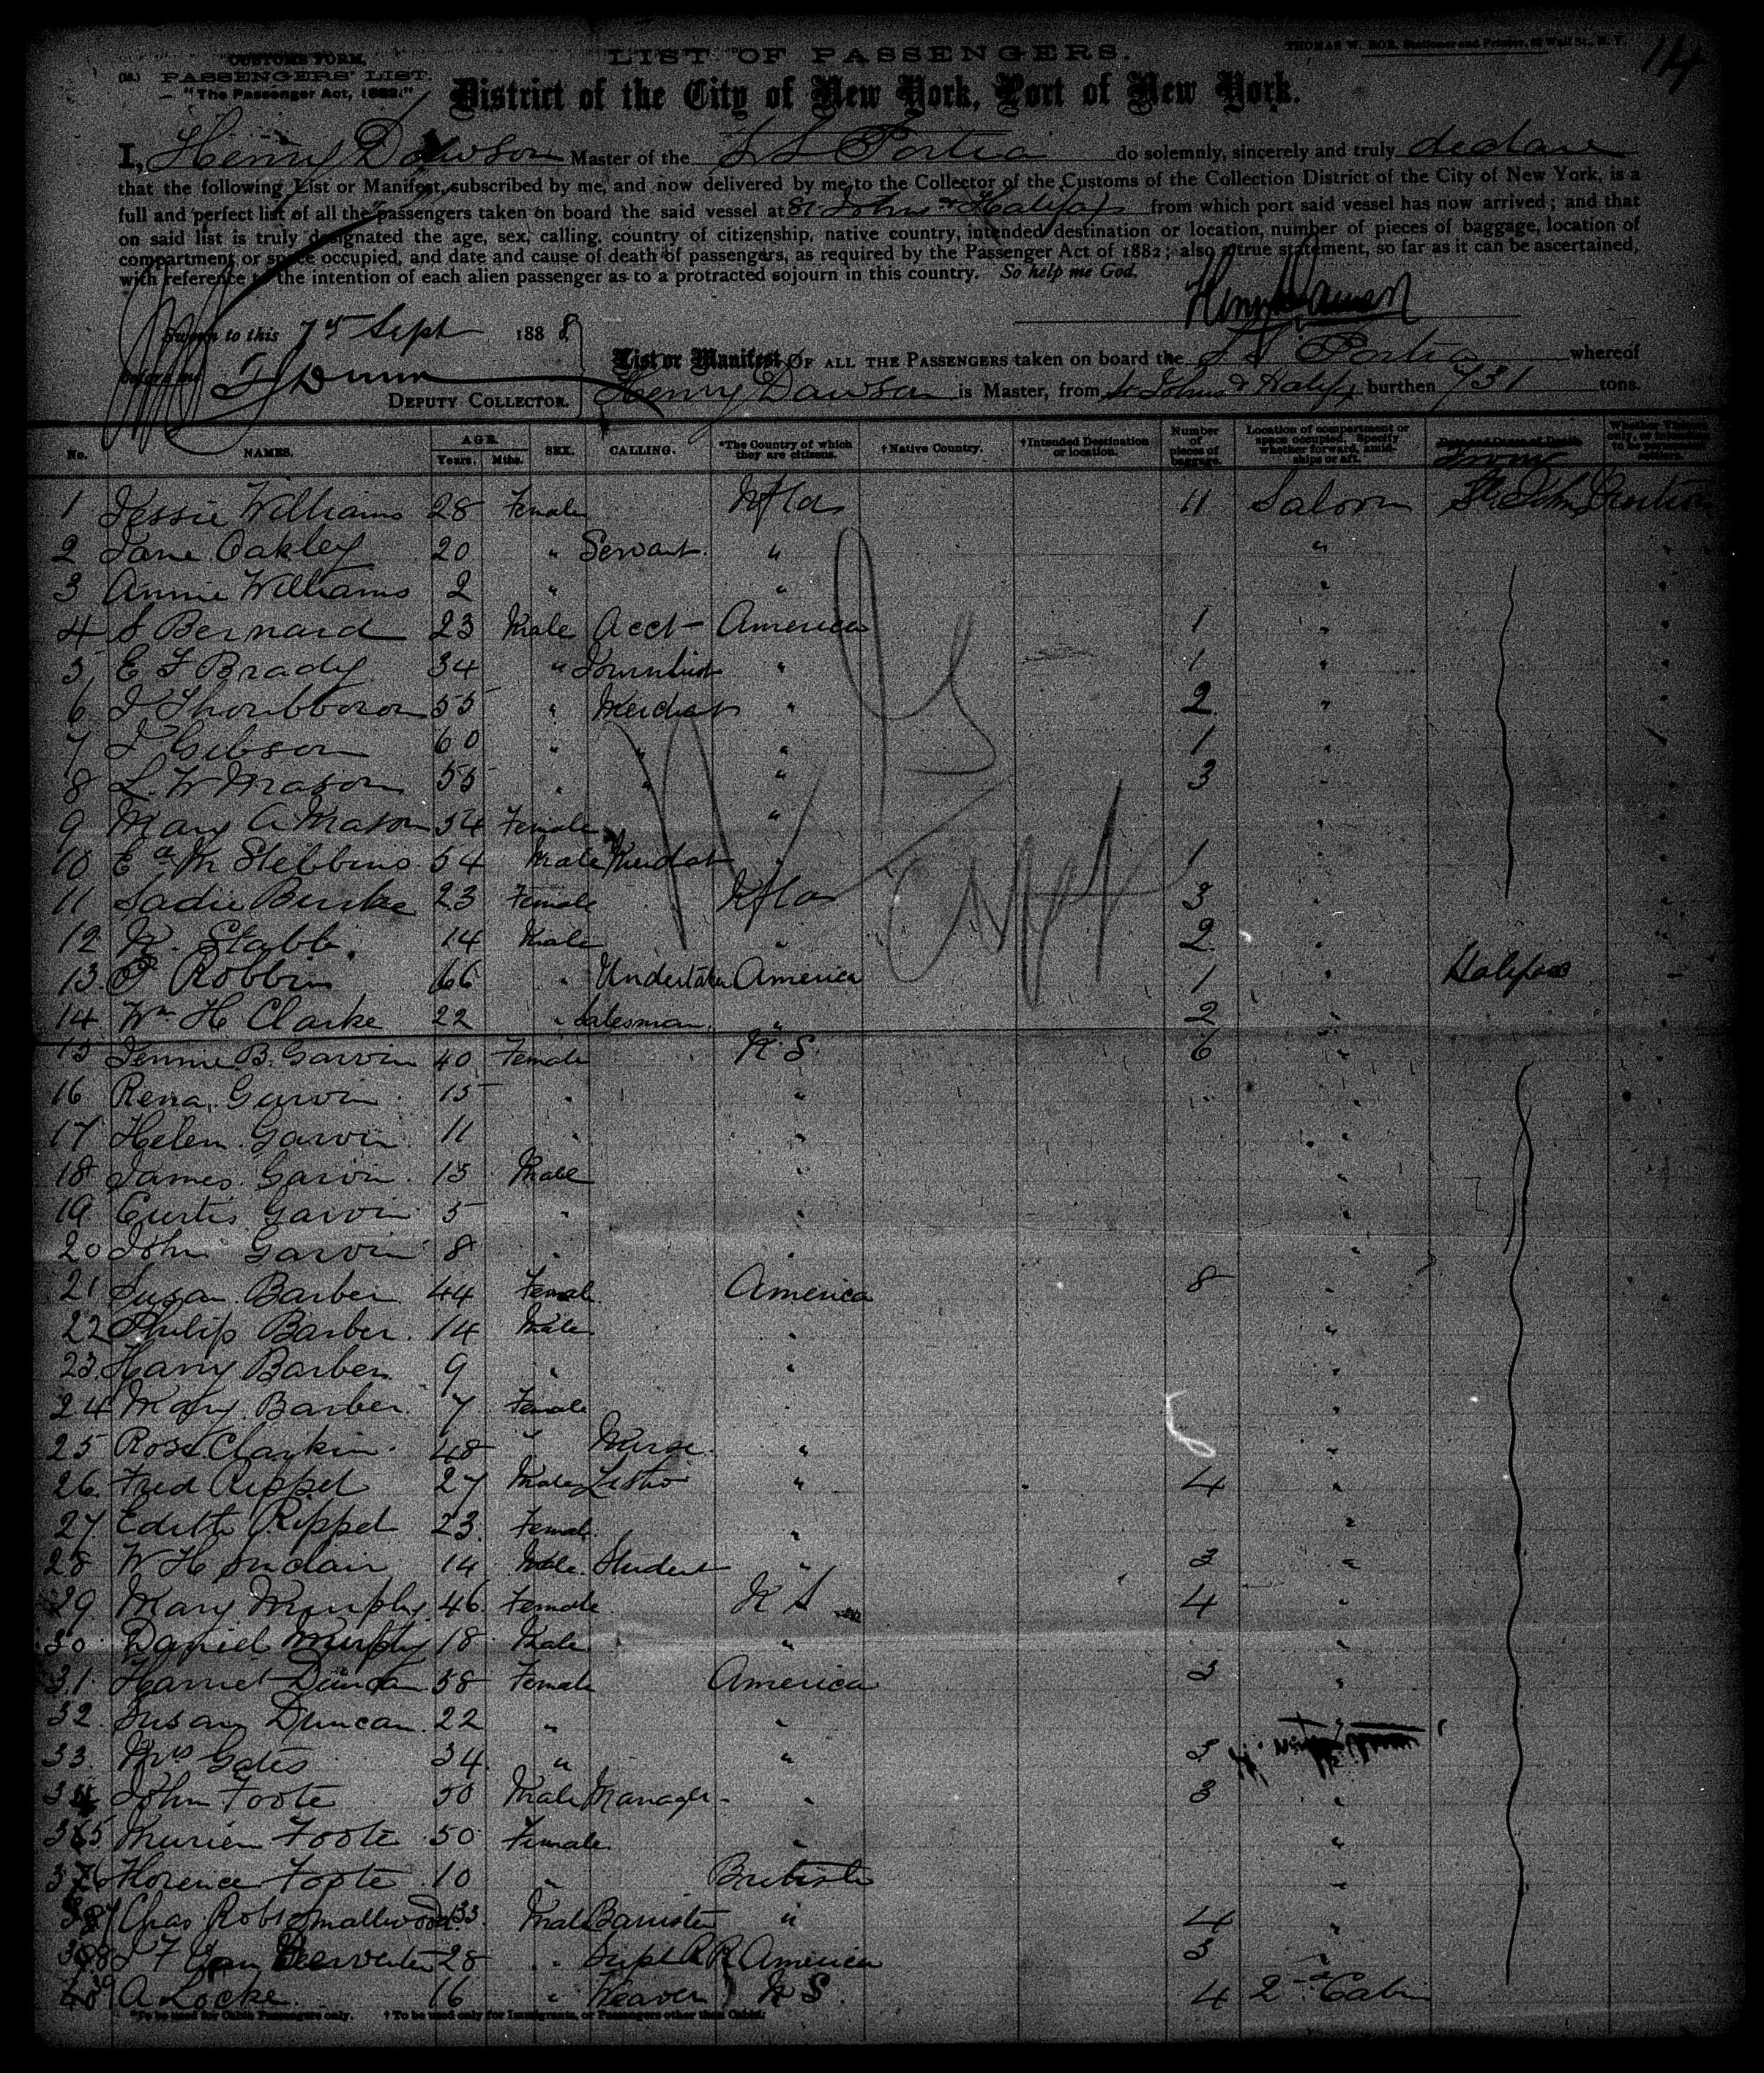 114
CUSTOMS FORM.
PASSENGERS' LIST.
"The Passenger Act, 1882."
LIST OF PASSENGERS.
THOMAS W. Stationer and Printer, Wall St., N. Y.
District of the City of New York, Port of New York.
I, Henry Dawson Master of the S S Portia do solemnly, sincerely and truly declare
that the following List or Manifest, subscribed by me, and now delivered by me to the Collector of the Customs of the Collection District of the City of New York, is a
full and perfect list of all the passengers taken on board the said vessel at St Johns & Halifax from which port said vessel has now arrived; and that
on said list is truly designated the age, sex, calling, country of citizenship, native country, intended destination or location, number of pieces of baggage, location of
compartment or space occupied, and date and cause of death of passengers, as required by the Passenger Act of 1882; also a true statement, so far as it can be ascertained,
with reference to the intention of each alien passenger as to a protracted sojourn in this country. So help me God.
Henry Dawson
Sworn to this 7th Sept 1888
before me Dunn
DEPUTY COLLECTOR.
List or Manifest OF ALL THE PASSENGERS taken on board the S S Portia whereof
Henry Dawson is Master, from St Johns & Halifax burthen 731 tons.
No. NAMES. AGE. Years. Mths. SEX. CALLING. *The Country of which they are citizens. †Native Country. †Intended Destination or location. Number of pieces of baggage. Location of compartment or space occupied. Specify whether forward, amidships or aft. From
1 Jessie Williams 28 Female Nfld 11 Saloon St. Johns
2 Jane Oakley 20 " Servant "  "
3 Annie Williams 2 " " "
4 S Bernard 23 Male Acct America 1 "
5 E F Brady 34 " " 1 "
6 55 " Merchant " 2 "
7 J Gibson 60 " " " 1 "
8 L. W Mason 55 " " " 3 "
9 Mary A Mason 54 Female " "
10 Ed M Stebbins 54 Male Merchant " 1 "
11 Sadie Burke 23 Female Nfld 3 "
12 Stabb 14 Male " 2 "
13 Robbin 66 " Undertaker America 1 " Halifax
14 Wm H Clarke 22 " Salesman " 2 "
15 Jennie B. Garvin 40 Female N S. 6 "
16 Rena Garvin 15 " " "
17 Helen Garvin 11 " " "
18 James Garvin 13 Male " "
19 Curtis Garvin 5 " " "
20 John Garvin 8 " " "
21 Susan Barber 44 Female America 8 "
22 Philip Barber 14 Male " "
23 Harry Barber 9 " " "
24 Mary Barber 7 Female " "
25 Rose Clarkin 48 " Nurse " "
26 Fred Rippel 27 Male Litho " 4 "
27 Edith Rippel 23 Female " "
28 W H Sinclair 14 Male Student " 3 "
29 Mary Murphy 46 Female N S 4 "
30 Daniel Murphy 18 Male " "
31 Harriet Duncan 58 Female America 3 "
32 Susan Duncan 22 " " "
33 Mrs Gates 34 " " 3
34 John Foote 50 Male Manager " 3 "
35 Foote 50 Female " "
36 Florence Foote 10 " British "
37 Chas Robt Smallwood 33 Male Barrister " 4 "
38 J F Van 28 " Supt R R America 3 "
39 A Locke 16 " Weaver N S. 4 2nd Cabin
*To be used for Cabin Passengers only. †To be used only for Immigrants, or Passengers other than Cabin.